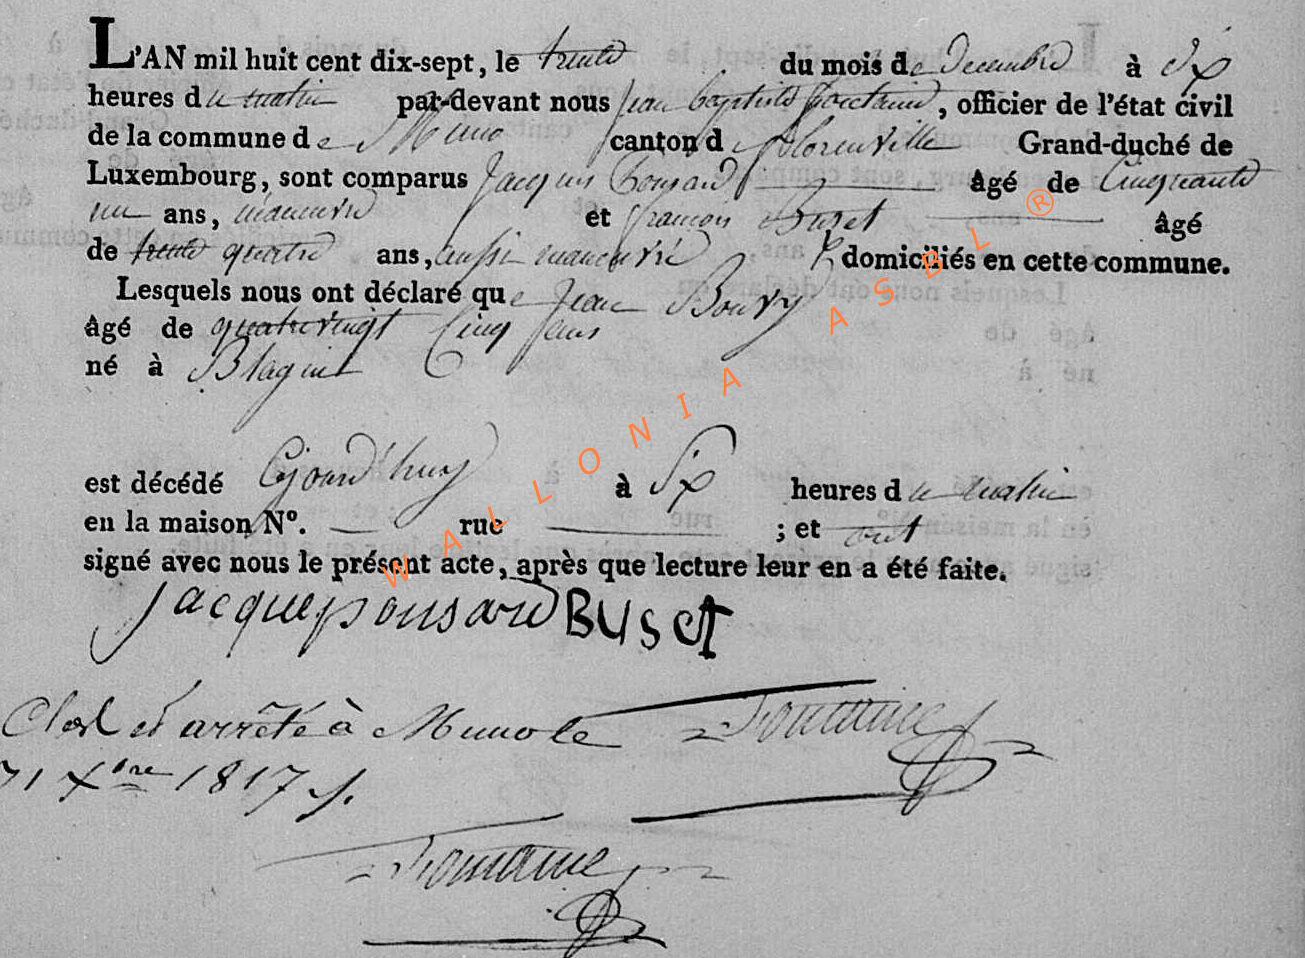 L'AN mil huit cent dix-sept, le trente du mois de Decembre à Dix
heures du matin par-devant nous Jean baptiste fontaine, officier de l'état civil
de la commune de Muno canton de florenville Grand-duché de
Luxembourg, sont comparus Jacques Ponsard âgé de Cinquante
un ans, manouvrié et françois Buset âgé
de trente quatre ans, aussi manouvrié domiciliés en cette commune.
Lesquels nous ont déclaré que Jean Bouvy
âgé de quatrevingt Cinq ans
né à Blagnie
est décédé Cejourd'huy à Six heures du matin
en la maison N°. rue ; et ont
signé avec nous le présent acte, après que lecture leur en a été faite.
jacqueponsard BUSET
Clos et arrêté à Muno le Fontaine
31 Xbre 1817
Fontaine
WALLONIA ASBL ®